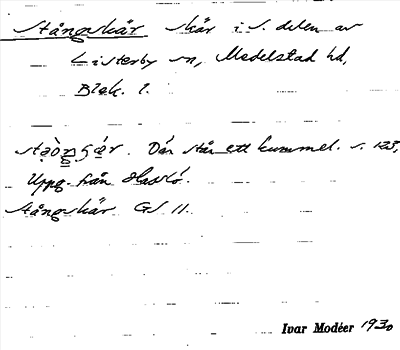 Stångskär skär i S. delen av
Listerby sn, Medelstad hd,
Blek. l.
Där står ett kummel. s. 123,
Uppg. från Hasslö.
Stångskär GS 11.
Ivar Modéer 1930